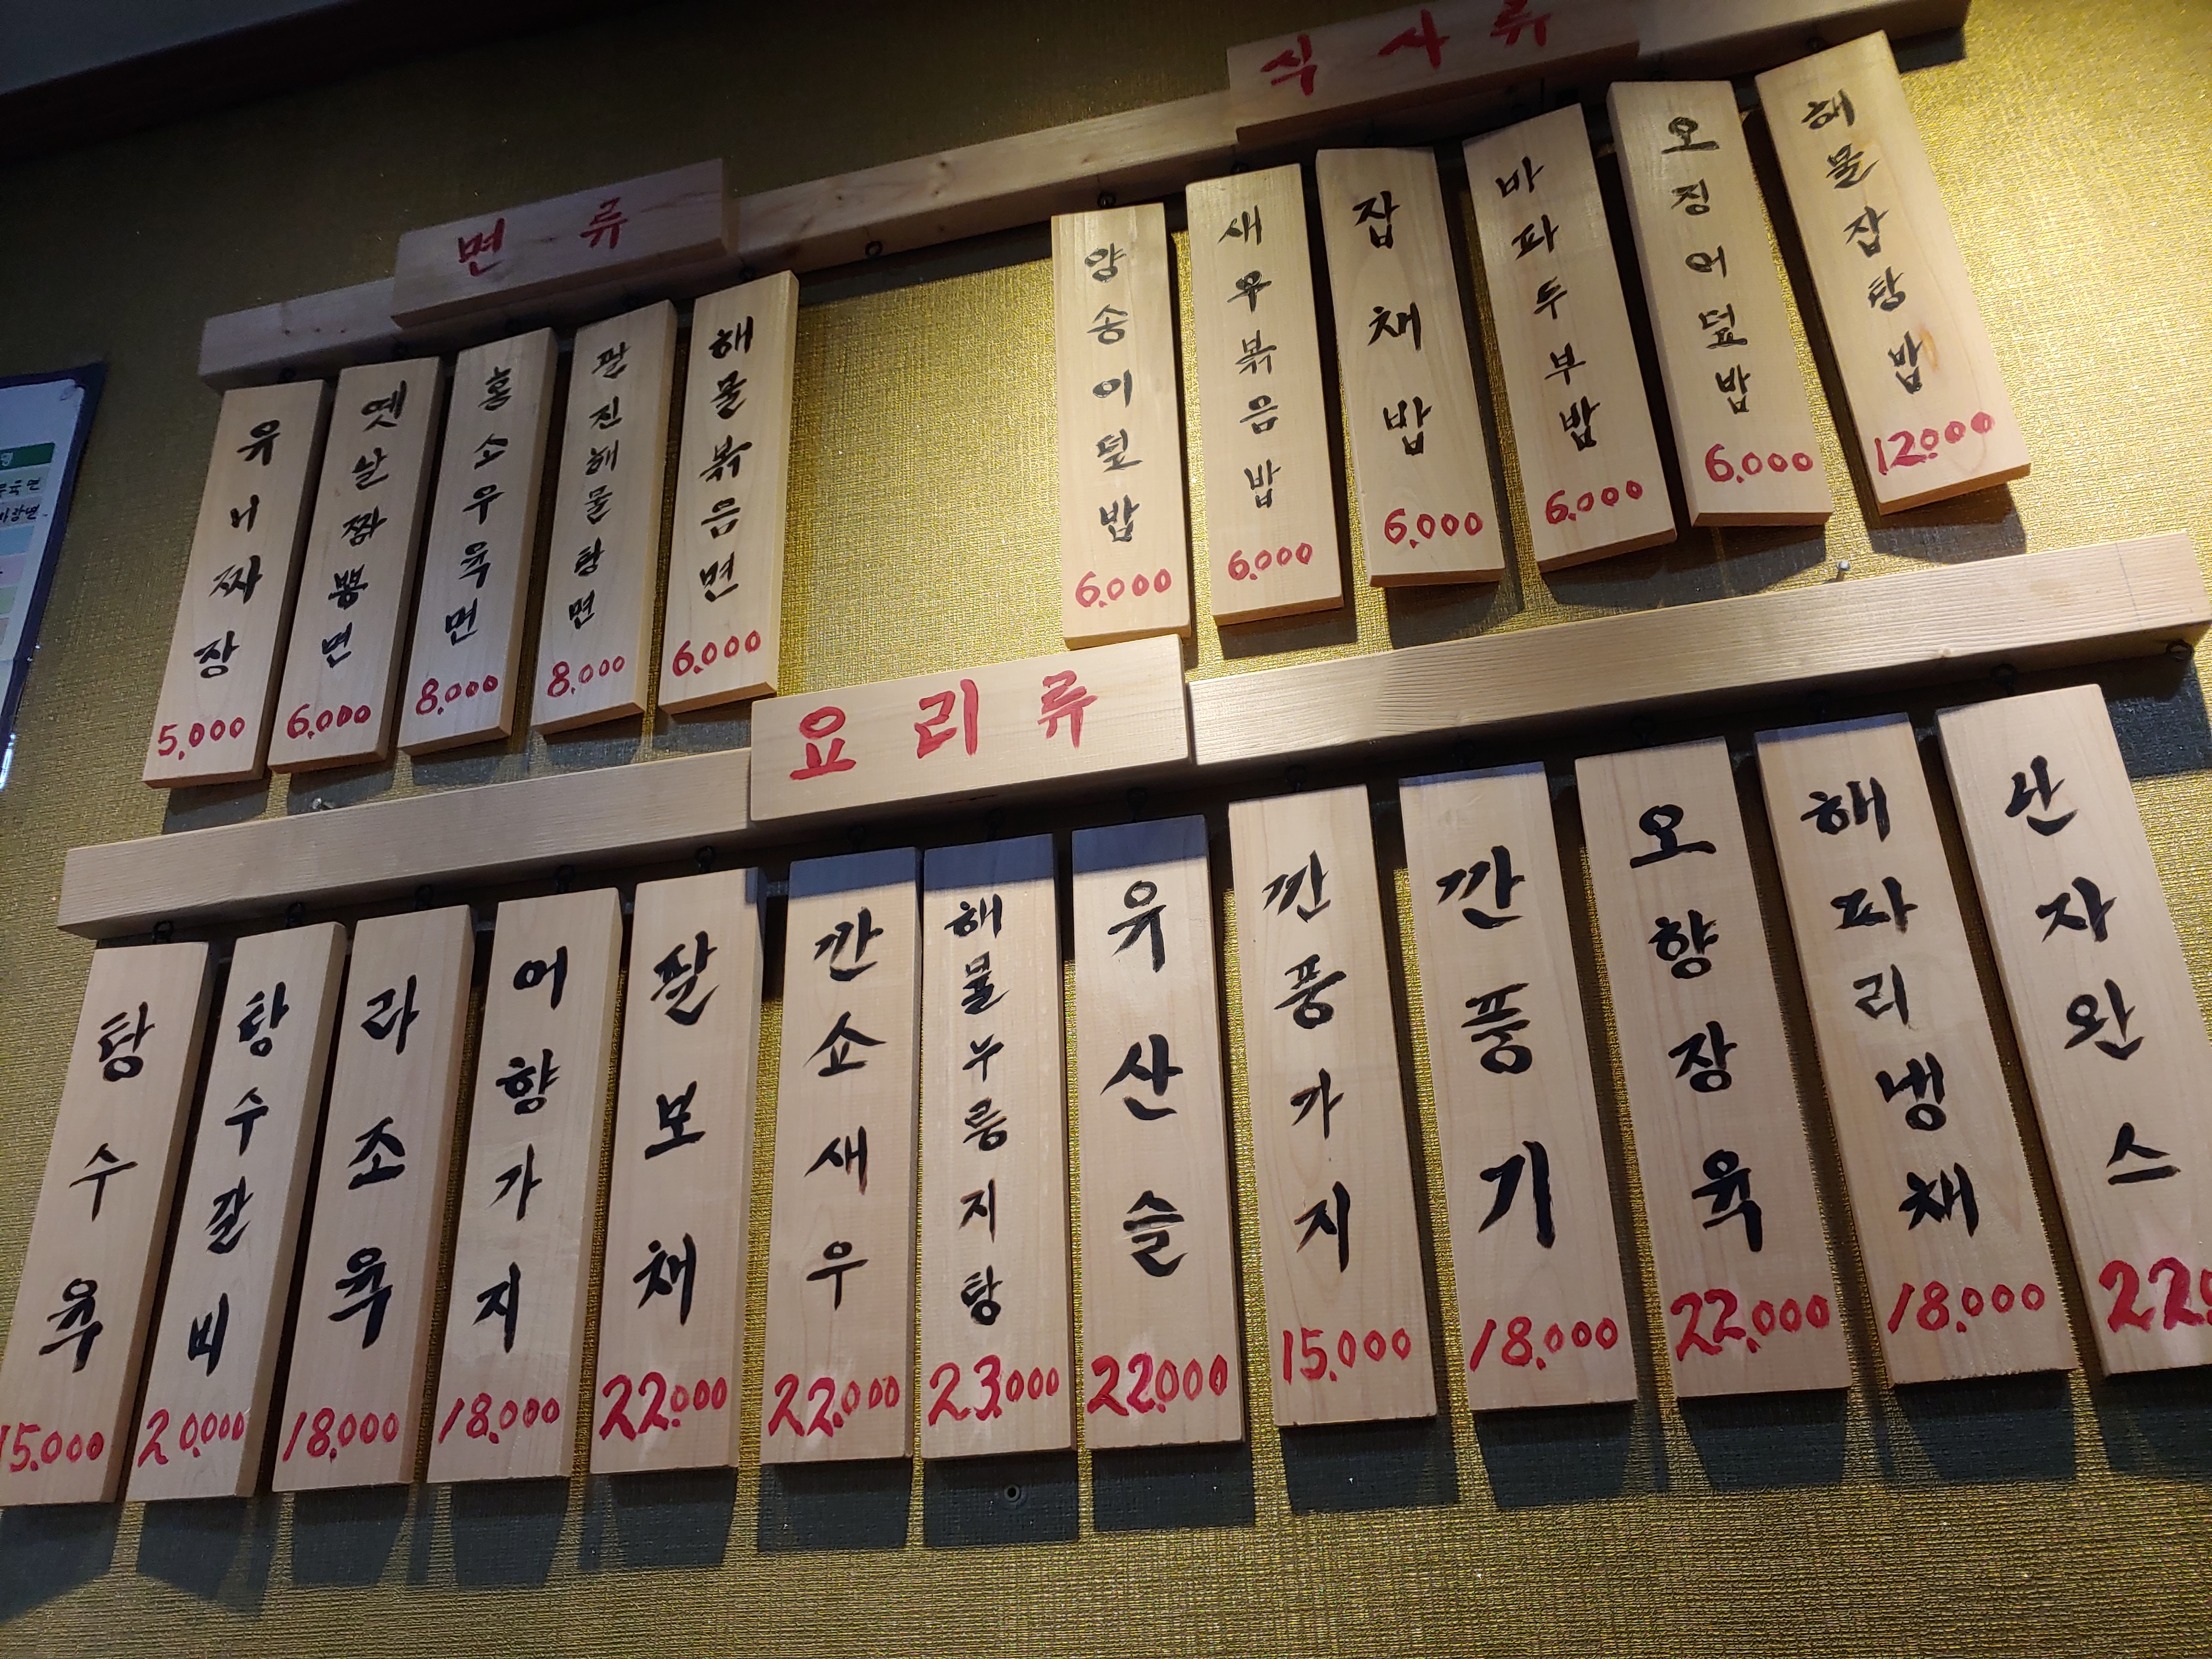 면류
유니짜장
5,000
옛날짬뽕면
6,000
홍소우육면
8,000
팔진해물탕면
8,000
해물볶음면
6,000
식사류
양송이덮밥
6,000
새우볶음밥
6,000
잡채밥
6,000
마파두부밥
6,000
오징어덮밥
6,000
해물잡탕밥
12,000
요리류
탕수육
15,000
탕수갈비
20,000
라조육
18,000
어향가지
18,000
팔보채
22,000
깐쇼새우
22,000
해물누릉지탕
23,000
유산슬
22,000
깐풍가지
15,000
깐풍기
18,000
오향장육
22,000
해파리냉채
18,000
난자완스
22,